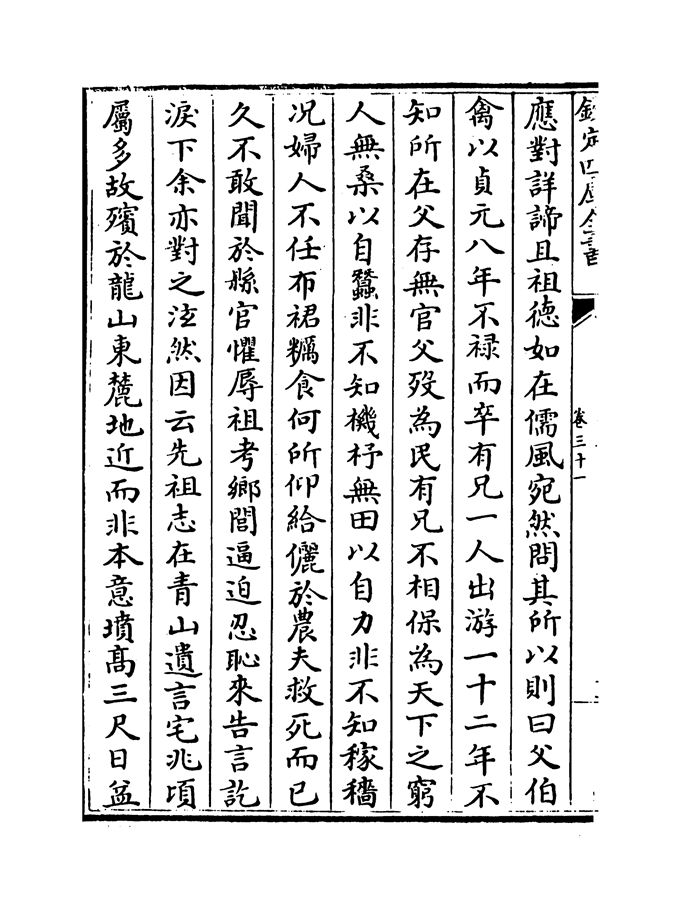 欽定四庫全書
卷三十一
應對詳諦且祖德如在儒風宛然問其所以則曰父伯
禽以貞元八年不禄而卒有兄一人出游一十二年不
知所在父存無官父殁為民有兄不相保為天下之窮
人無桑以自蠶非不知機杼無田以自力非不知稼穡
况婦人不任布裙糲食何所仰給儷於農夫救死而已
久不敢聞於縣官懼辱祖考鄉閭逼迫忍恥來告言訖
淚下余亦對之泫然因云先祖志在青山遺言宅兆頃
屬多故殯於龍山東麓地近而非本意墳髙三尺日益